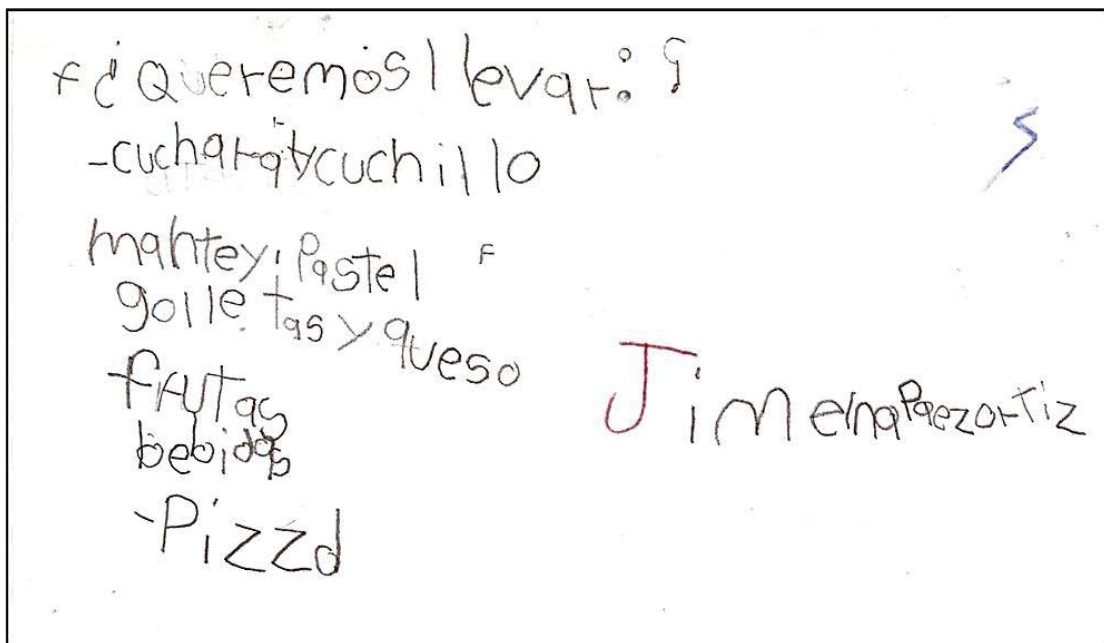 ¿Queremos llevar:?
-cuchara y cuchillo
mantey Pastel
golletas y queso
frutas
bebidas
-Pizza
Jimena Paez ortiz